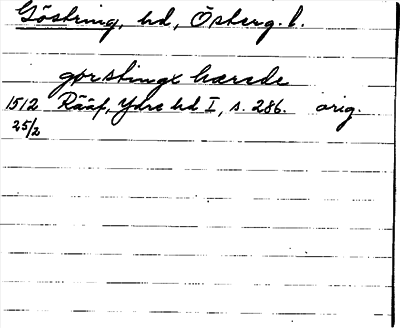 Göstring, hd, Österg. l.
gørstingx hærede
1512 Rääf, Ydre hd I, s. 286. orig.
25/2